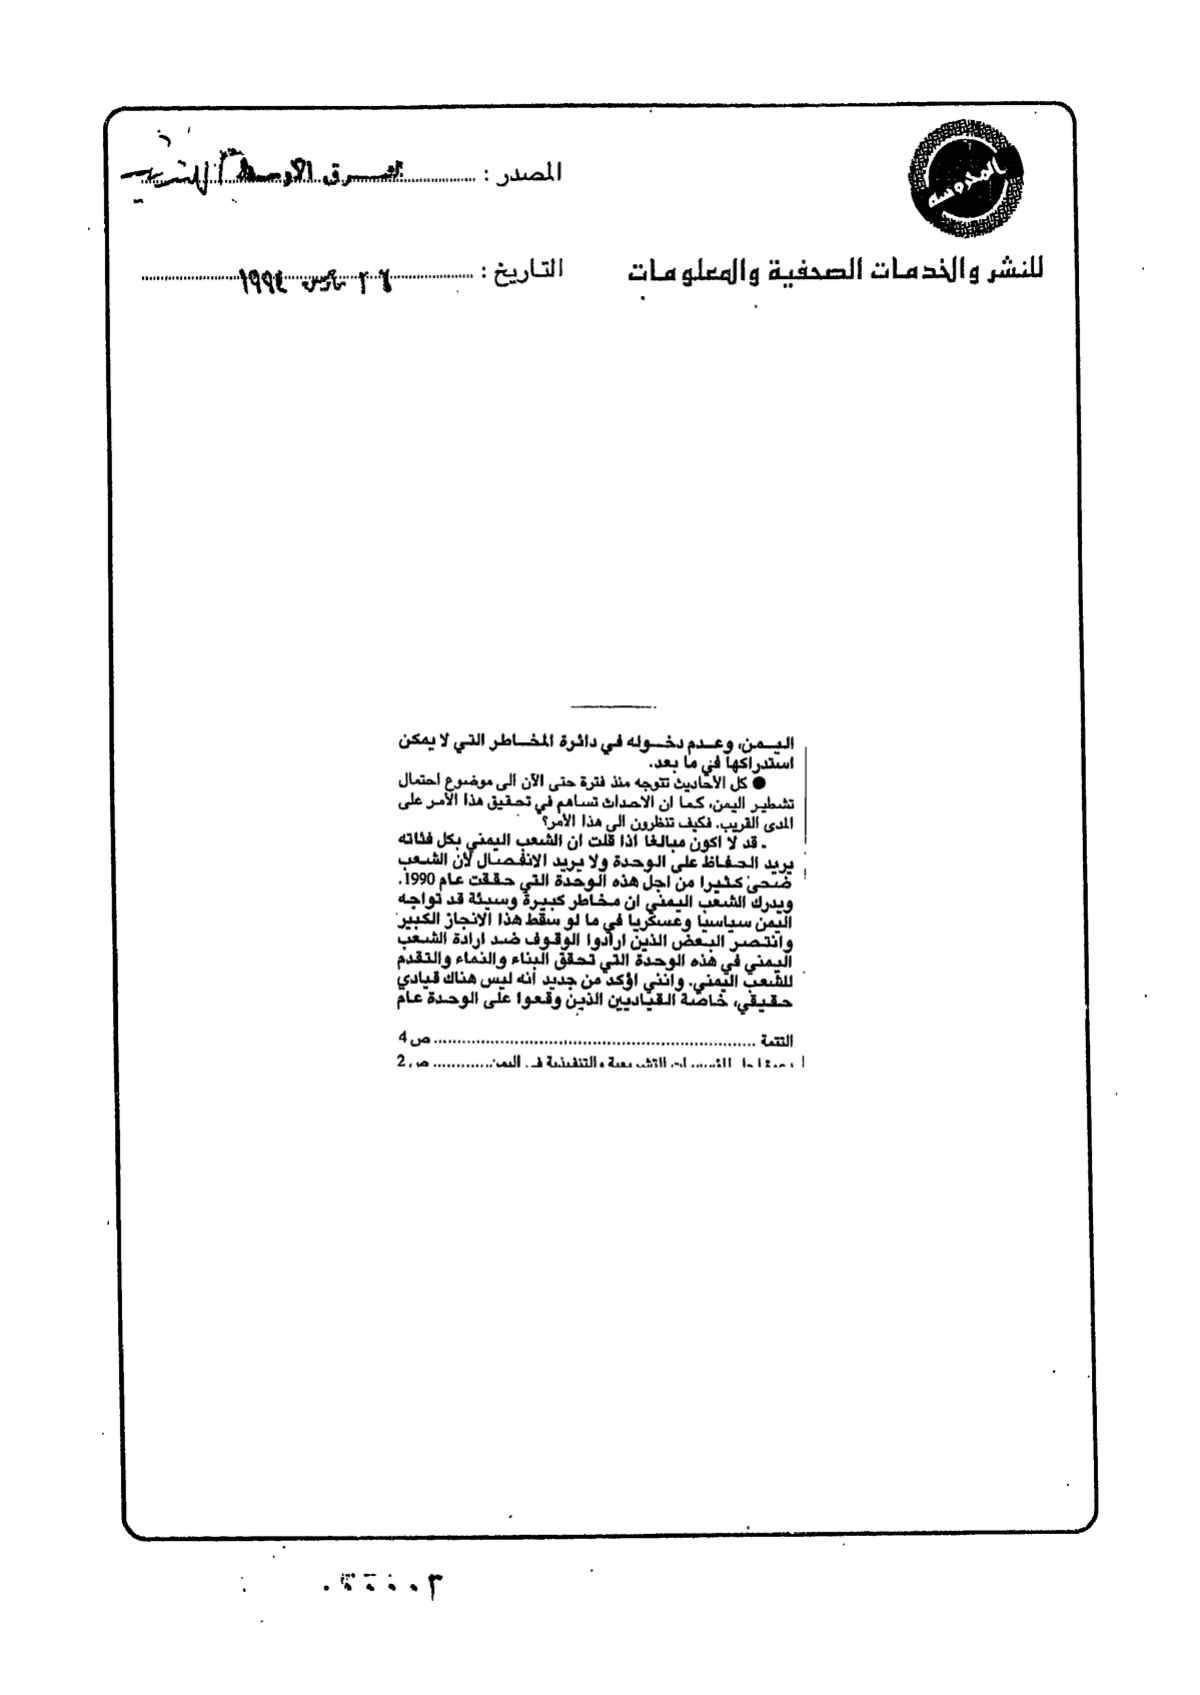 المحروسة
المصدر : الشرق الأوسط اللندنية
للنشر والخدمات الصحفية والمعلومات
التاريخ : ٢٦ مارس ١٩٩٤
اليمن، وعدم دخوله في دائرة المخاطر التي لا يمكن
استدراكها في ما بعد.
● كل الأحاديث تتوجه منذ فترة حتى الآن الى موضوع احتمال
تشطير اليمن، كما ان الاحداث تساهم في تحقيق هذا الأمر على
المدى القريب. فكيف تنظرون الى هذا الأمر؟
ـ قد لا اكون مبالغا اذا قلت ان الشعب اليمني بكل فئاته
يريد الحفاظ على الوحدة ولا يريد الانفصال لأن الشعب
ضحى كثيرا من اجل هذه الوحدة التي حققت عام 1990.
ويدرك الشعب اليمني ان مخاطر كبيرة وسيئة قد تواجه
اليمن سياسيا وعسكريا في ما لو سقط هذا الانجاز الكبير
وانتصر البعض الذين ارادوا الوقوف ضد ارادة الشعب
اليمني في هذه الوحدة التي تحقق البناء والنماء والتقدم
للشعب اليمني. وانني اؤكد من جديد أنه ليس هناك قيادي
حقيقي، خاصة القياديين الذين وقعوا على الوحدة عام
التتمة ........ ص 4
المؤسسات التشريعية والتنفيذية في اليمن ........ ص 2